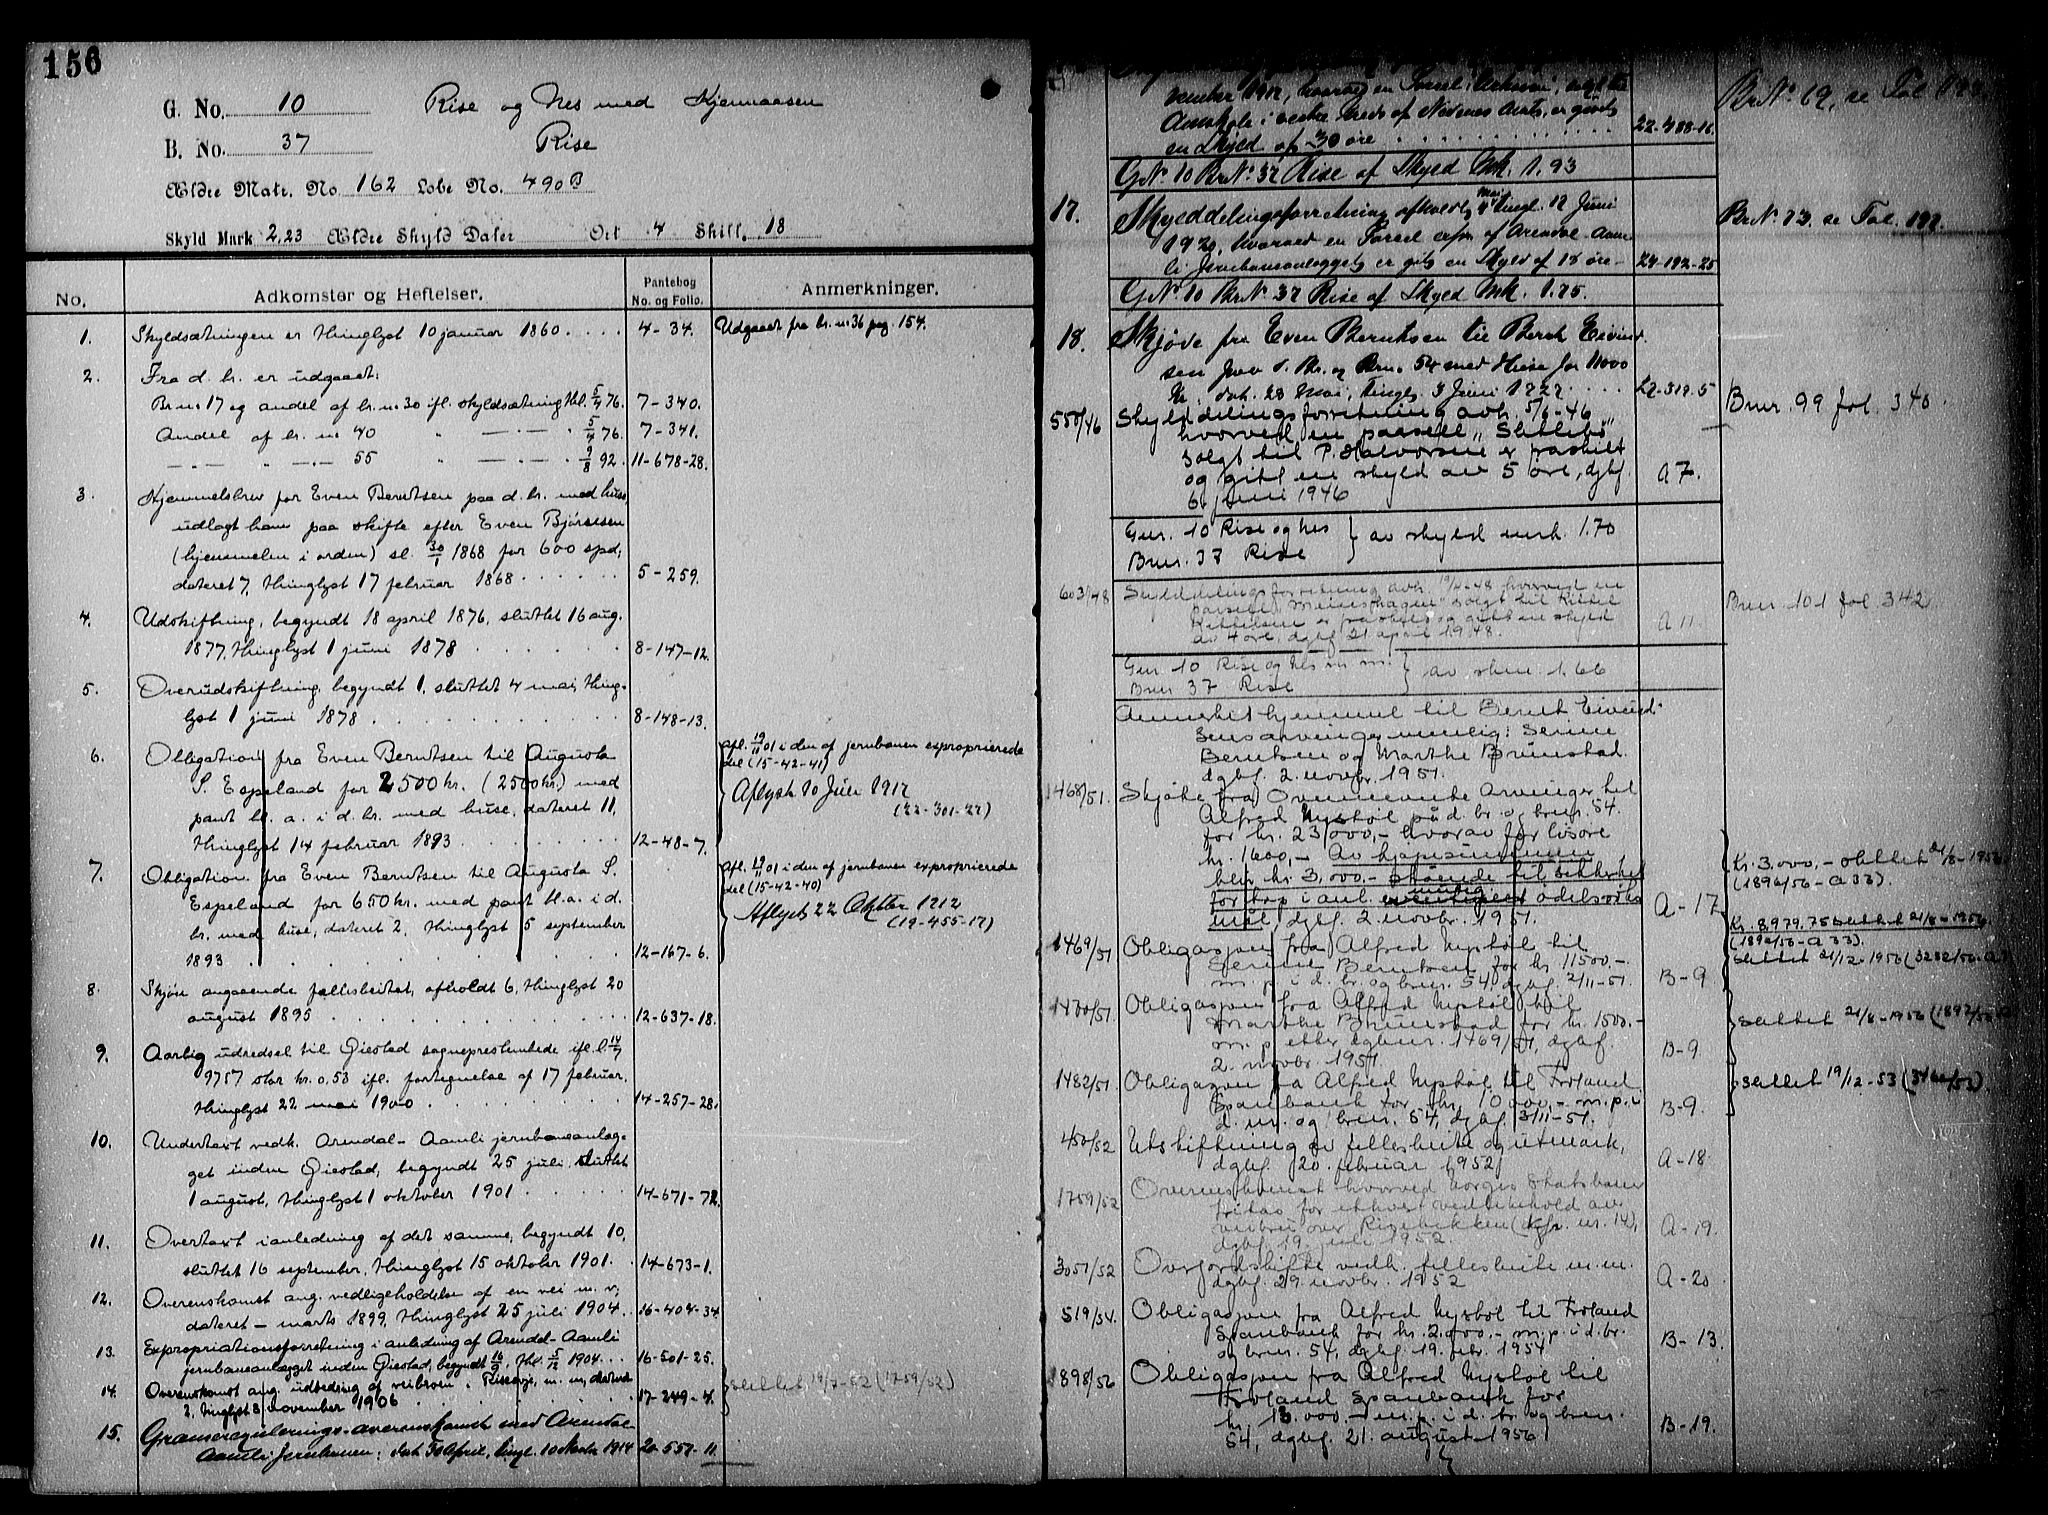 156
G. No. 10 Rise og Nes med Hjennaasen
B. No. 37 Rise
Ældre Matr. No. 162 Løbe No. 490 B
Skyld Mark 2,23 Ældre Skyld Daler Ort 4 Skill. 18
No. Adkomster og Heftelser. Pantebog No. og Folio. Anmerkninger.
1. Skyldsætningen er thinglyst 10 januar 1860 . . . . 4-34. Udgaaet fra br. no 36 pag 154.
2. Fra d. br. er udgaaet:
Br no 17 og andel af br. no 30 ifl. skyldsætning thl. 5/4 76. 7-340.
Andel af br. no 40 " — . — . 5/4 76. 7-341.
— . — . — " — . — 55 " — . — . 9/8 92. 11-678-28.
3. Hjemmelsbrev for Even Berntsen paa d. br. med huse
udlagt ham paa skifte efter Even Bjørnsen
(hjemmelen i orden) sl. 30/1 1868 for 600 spd;
dateret 7, thinglyst 17 februar 1868 . . . . . . 5-259.
4. Udskiftning, begyndt 18 april 1876, sluttet 16 aug.
1877, thinglyst 1 juni 1878 . . . . . . 8-147-12.
5. Overudskiftning, begyndt 1, sluttet 4 mai, thing-
lyst 1 juni 1878 . . . . . . . . 8-148-13.
6. Obligation fra Even Berntsen til Augusta
S. Espeland for 2500 kr. (2500 kr.) med
pant bl. a. i d. br. med huse, dateret 11,
thinglyst 14 februar 1893 . . . . . . 12-48-7.
afl. 19/11 01 i den af jernbanen exproprierede
del (15-42-41)
Aflyst 10 Juli 1917
(22-301-27)
7. Obligation fra Even Berntsen til Augusta S.
Espeland for 650 kr. med pant bl. a. i d.
br. med huse, dateret 2, thinglyst 5 september
1893 . . . . . . . . . . 12-167-6.
afl. 19/11 01 i den af jernbanen exproprierede
del (15-42-40)
Aflyst 22 Oktbr 1912
(19-455-17)
8. Skjøn angaaende fællesbeitet, afholdt 6, thinglyst 20
august 1895 . . . . . . . . . . 12-637-18.
9. Aarlig udredsel til Øiestad sogneprestembede ifl. l. 14/7
9757 stor kr. 0,53 ifl. fortegnelse af 17 februar,
thinglyst 22 mai 1900 . . . . . . . 14-257-28.
10. Undertaxt vedk. Arendal-Aamli jernbaneanlæg-
get inden Øiestad, begyndt 25 juli, sluttet
1 august, thinglyst 1 oktober 1901 . . . . . 14-671-72.
11. Overtaxt i anledning af det samme, begyndt 10,
sluttet 16 september, thinglyst 15 oktober 1901 . . 14-673-1.
12. Overenskomst ang. vedligeholdelse af en vei m. v;
dateret – marts 1899, thinglyst 25 juli 1904 . . 16-404-34
13. Expropriationsforretning i anledning af Arendal-Aamli
jernbaneanlægget inden Øiestad, begyndt 16/9, thl. 5/12 1904 . . . 16-501-25.
14. Overenskomst ang. udbedring af veibroen i m. m, dateret
2, thinglyst 3 november 1906 . . . . . 17-249-4. slettet 19/7-52 (1759/52)
15. Grænsereguleringsoverenskomst med Arendal
Aamli Jernbanen; dat. 30 April, tingl. 1914 20-557-11
vember 1917, hvorved en Parsel solgt til
Amtskole i vestre kreds af Nedenes Amt, er givet
en skyld af 30 øre . . . . . . . . . 22-488-16. Br.No. 69, se Fol.
G.No. 10 Br.No. 37 Rise af Skyld Mk. 1.93
17. Skylddelingsforretning afholdt 4 Mai tingl. 12 Juni
1920, hvorved en Parcel expr af Arendal Aam-
li Jernbaneanlegget er git en Skyld af 18 øre- 24-192-25 Br.No. 73. se Fol. 197.
G.No. 10 Br.No. 37 Rise af Skyld Mrk. 1.75.
18. Skjøde fra Even Berntsen til Bernt Eivind-
sen paa d. Br. og Brno 54 med Huse for 11000
Kr, dat. 28 Mai, tingl. 3 Juni 1927 . . . . 27-319.5
550/46 Skylddelingsforretning avh. 5/6-46
hvorved en parsell "Slettebø"
solgt til P. Halvorsen er fraskilt
og gitt en skyld av 5 øre, dgbf.
6 juni 1946 A 7. Bnr. 99 fol. 340.
Gnr. 10 Rise og Nes } av skyld mrk. 1.70
Bnr. 37 Rise
603/48 Skylddelingsforretning avh. 19/4-48 hvorved en
parsell solgt til Kittel
Kittelsen er fraskilt og gitt en skyld
av 4 øre, dgbf. 21 april 1948. A 11. Bnr. 101 fol. 342
Gnr. 10 Rise og Nes m. m. } av skm. 1.66
Bnr 37 Rise
Anmerket hjemmel til Bernt Eivind-
sens arvinger nemlig: Serine
Berntsen og Marthe Brunstad.
dgbf. 2. novbr. 1951.
1468/51. Skjøte fra Ovennevnte Arvinger til
Alfred Nyshøl på d. br. og bnr. 54
for kr. 23,000,- hvorav for løsøre
kr. 1600,- Av kjøpesummen
blir kr 3,000,- stående til sikkerhet
for tap i anl. mulig odelssøks-
mål, dgbf. 2. novbr. 1951. A-17
Kr. 3.000,- slettet 21/8-1956
(1896/56-A33).
Kr. 8,979.75 slettet 21/8-1956
(1896/56-A33).
1469/51 Obligasjon fra Alfred Nyshøl til
Serine Berntsen for kr 11500,-
m. p i d. br. og bnr. 54, dgbf. 2/11-51. B-9
slettet 21/12-1956
1470/51. Obligasjon fra Alfred Nyshøl til
Marthe Brunstad for kr. 1500.-
m. p etter dgbnr. 1469/51, dgbf.
2. novbr. 1951. B-9
slettet 21/8-1956
1482/51. Obligasjon fra Alfred Nyshøl til Froland
Sparebank for kr. 10 000,- m.p. i
d. br. og bnr. 54, dgbf. 3/11-51. B-9. slettet 19/12-53
450/52 Utskiftning av fellesbeite og utmark,
dgbf. 20. februar 1952 A-18
1759/52 Overenskomst hvorved Norges Statsbaner
fritas for ethvert vedlikehold av
veibru over Risebekken (jfr. nr. 14),
dgbf. 19. juli 1952. A-19.
3051/52 Overjordskifte vedk. fellesbeite m.m.
dgbf. 29. novbr. 1952 A-20
519/54. Obligasjon fra Alfred Nyshøl til Froland
Sparebank for kr. 2.000.- m.p. i d. br.
og bnr. 54, dgbf. 19. febr. 1954 B-13.
1898/56 Obligasjon fra Alfred Nyshøl til
Froland Sparebank for
kr. 13.000 - m. p. i d. br. og bnr.
54, dgbf. 21. august 1956 B-19.